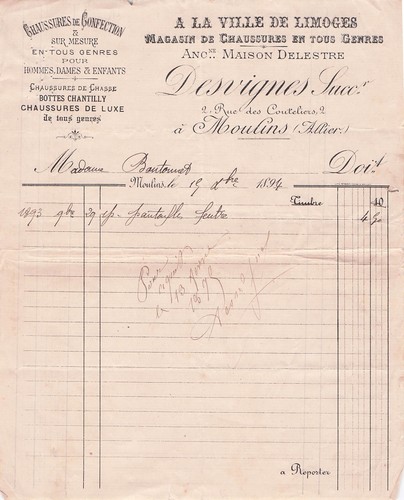 Chaussures de Confection
&
SUR MESURE
EN TOUS GENRES
POUR
HOMMES, DAMES & ENFANTS
CHAUSSURES DE CHASSE
BOTTES CHANTILLY
CHAUSSURES DE LUXE
de tous genres
A LA VILLE DE LIMOGES
MAGASIN DE CHAUSSURES EN TOUS GENRES
ANC.NE MAISON DELESTRE
Desvignes Succ.r
2, Rue des Couteliers, 2
à Moulins (Allier)
Madame Doit
Moulins, le 19 xbre 1894
Timbre 10
1893 9bre 29 pantoufle feutre 4 90
Pour
acquit
le 13
1895
Desvignes
a Reporter